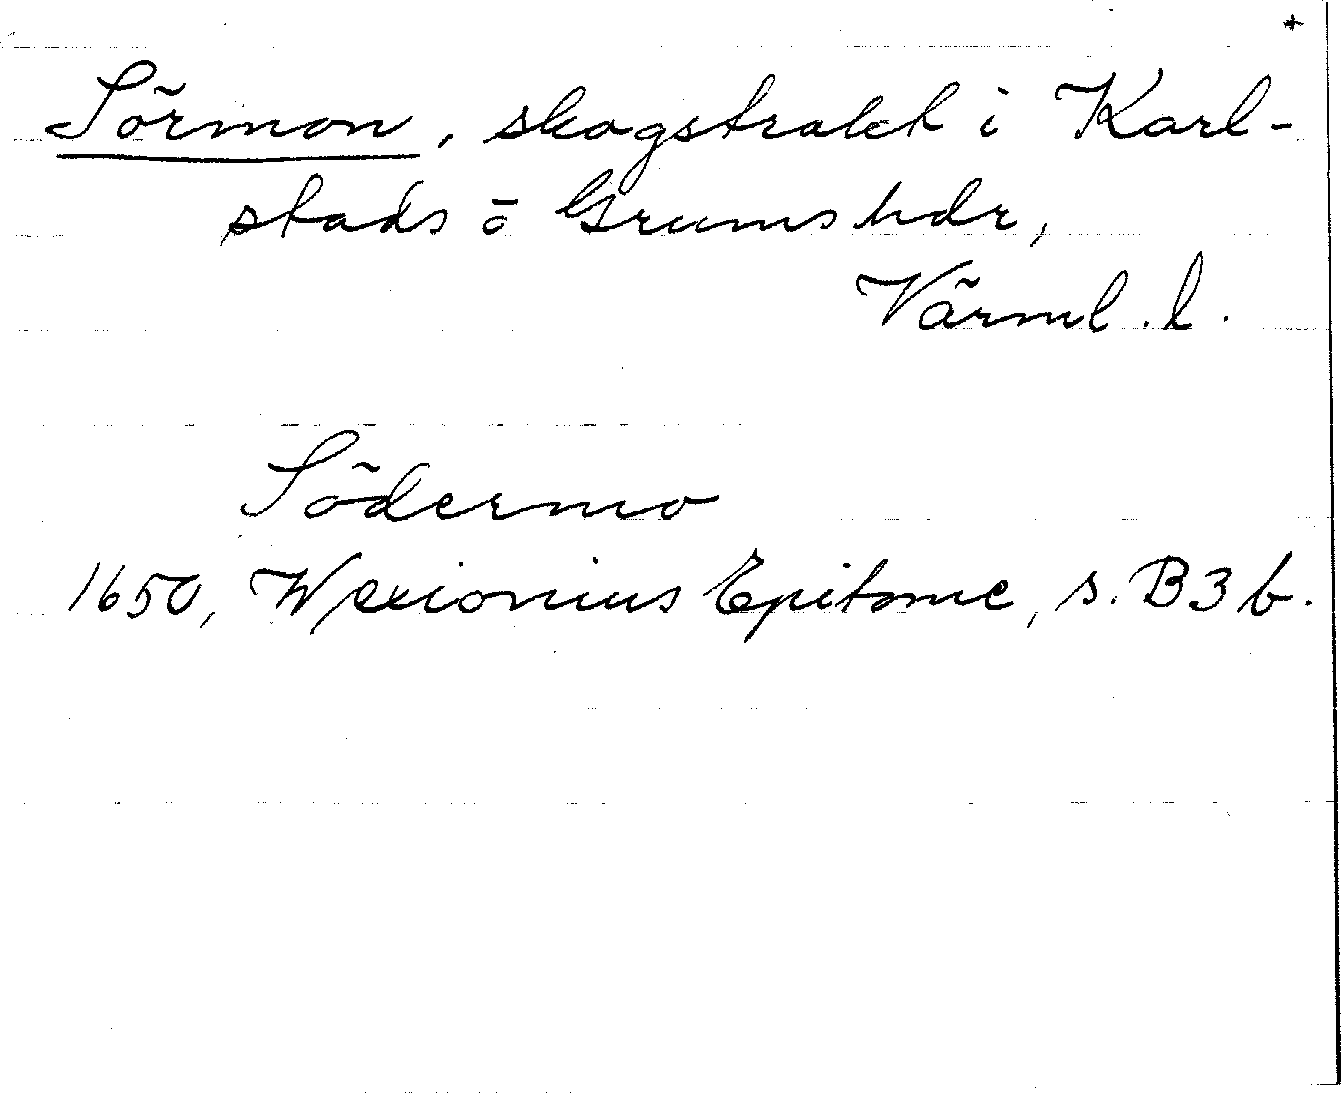 +
Sörmon, skogstrakt i Karl-
stads o Grums hdr,
Värml. l.
Södermo
1650, Wexionius Epitome, s. B3b.